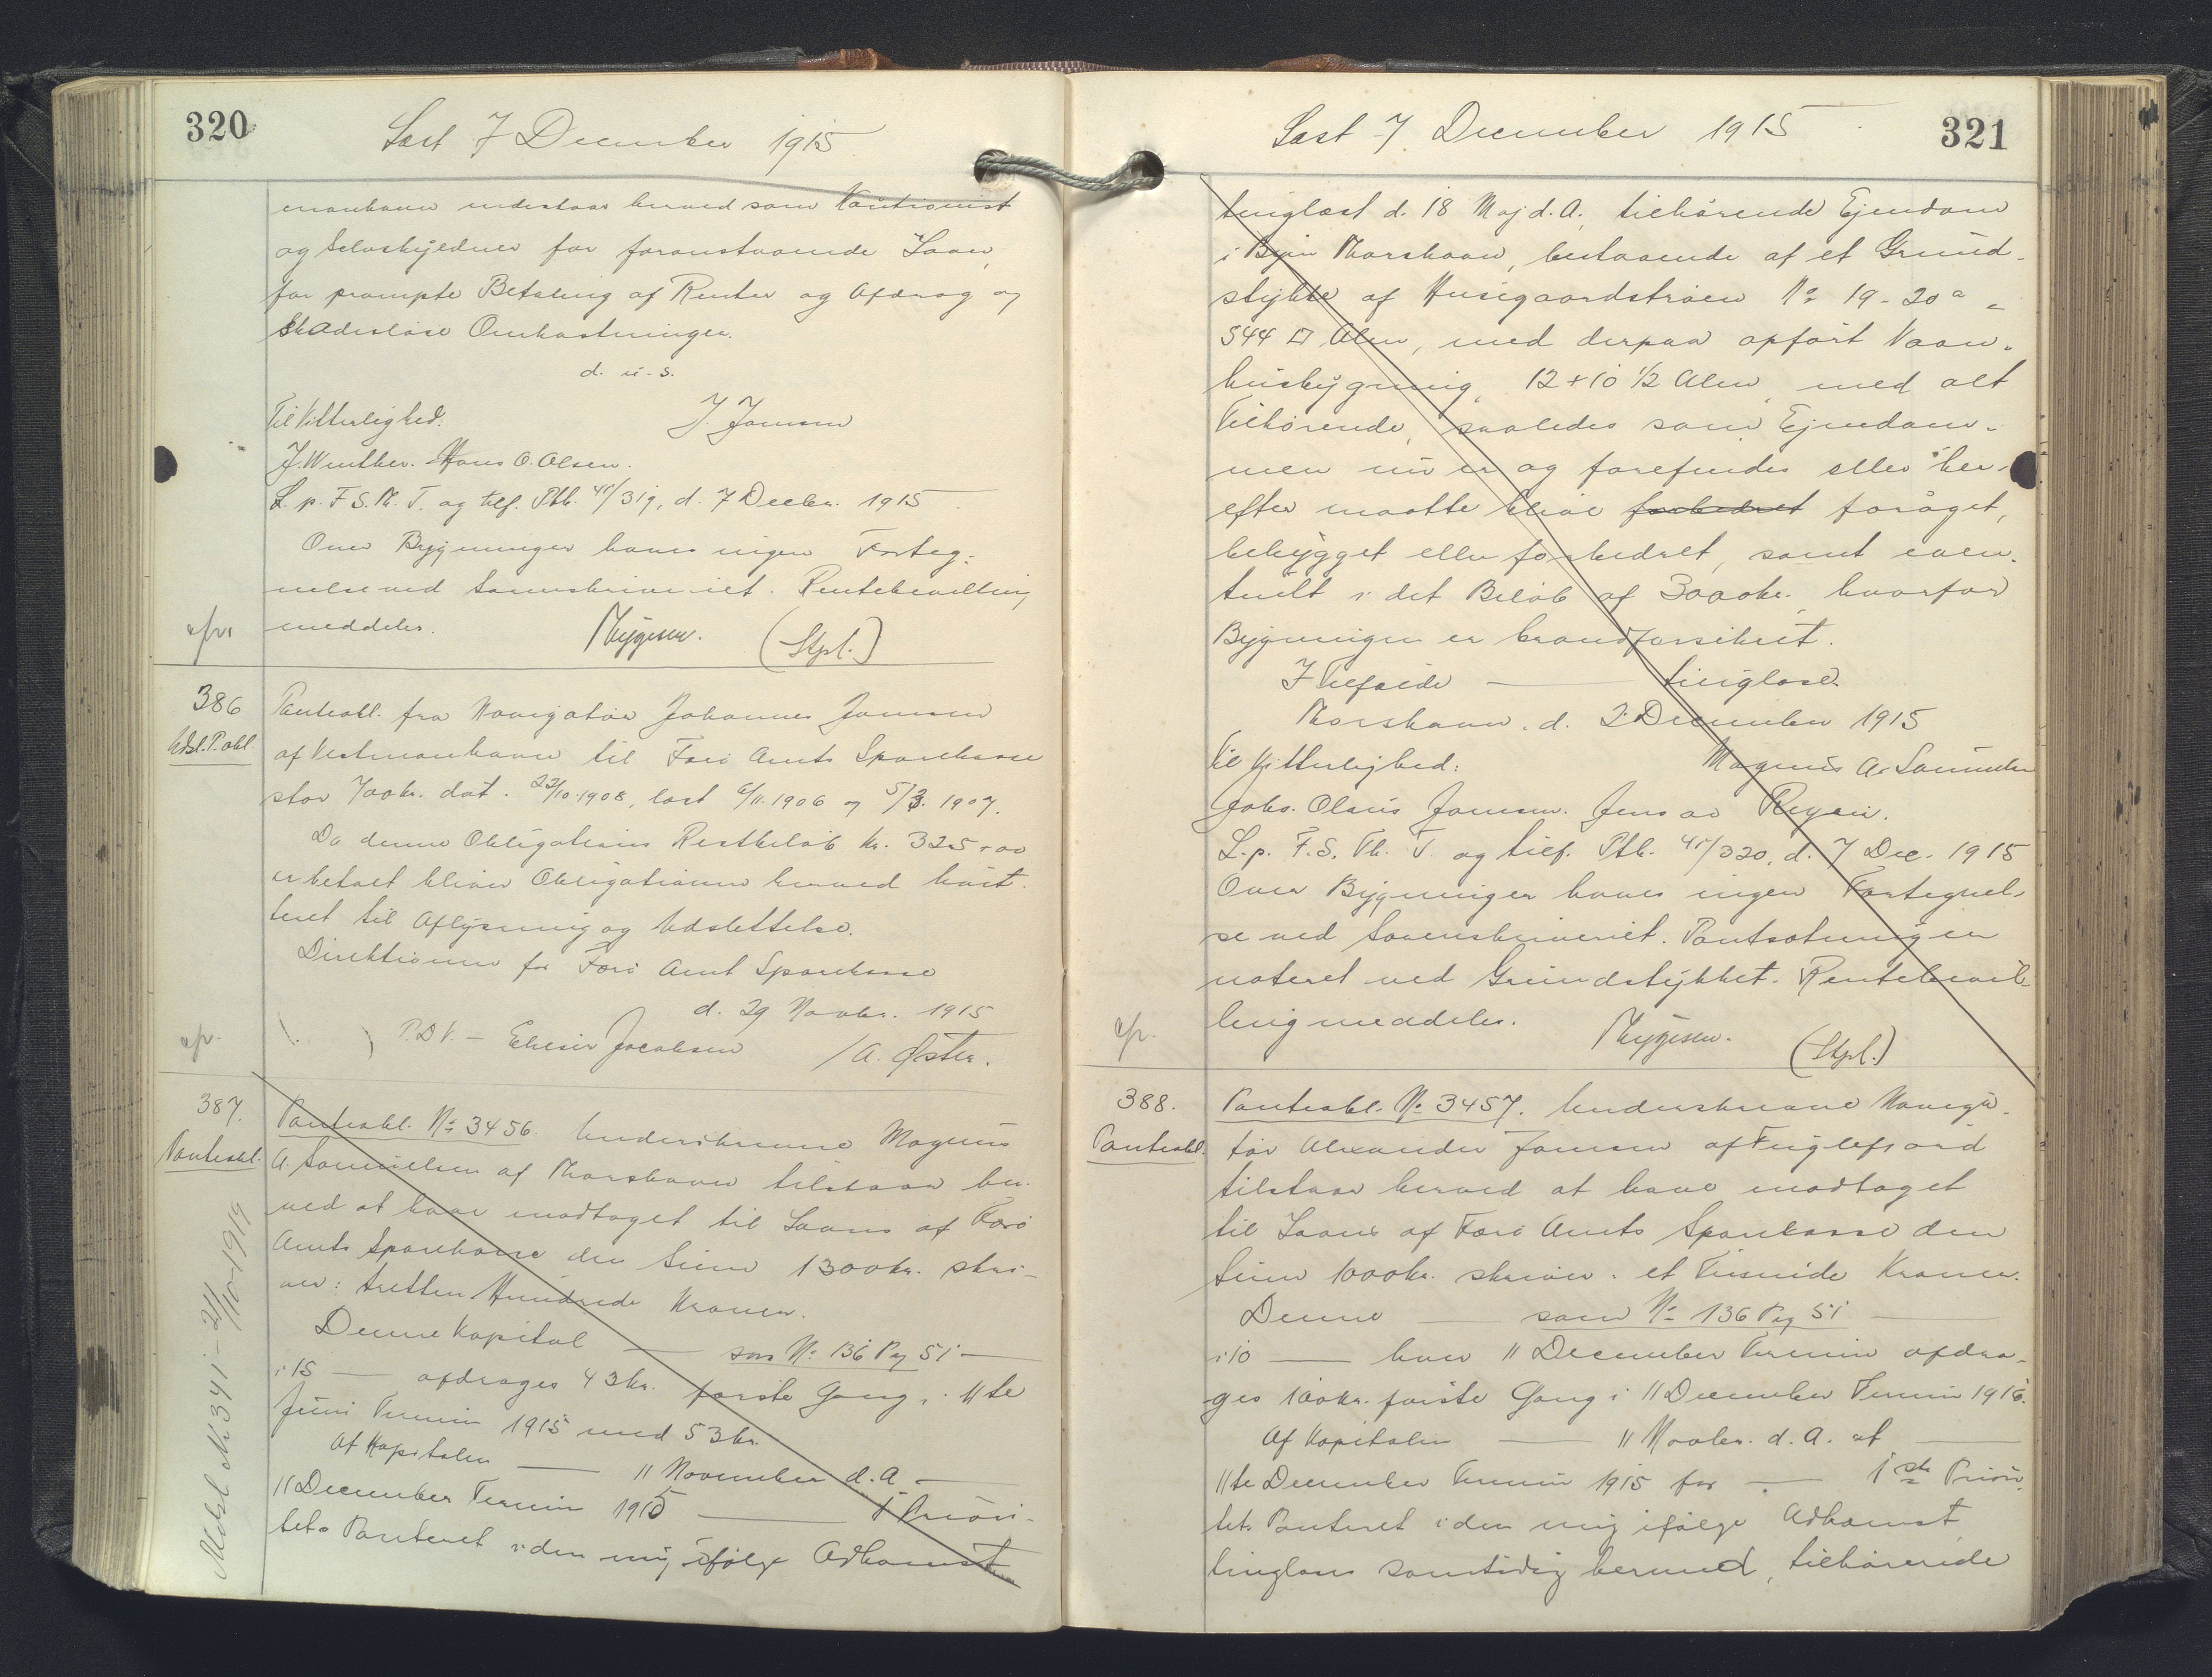 320
Læst 7 December 1915
manhavn indestaar herved som Kautionist
og Selvskyldner for foranstaaende Laan,
for prompte Betaling af Renter og Afdrag og
skadesløse Omkostninger.
d. u. s.
Til Vitterlighed: J. Joensen
J. Winther. Hans O. Olsen.
L. p. F. S. Th. T. og tilf. Ptb. 4r/319, d. 7 Decbr. 1915
Over Bygninger haves ingen Forteg-
nelse ved Sorenskriveriet. Rentebevilling
meddeles. (Stpl.)
afsr
386
Udsl. P. obl.
Panteobl. fra Navigatør Johannes Joensen
af Vestmanhavn til Færø Amts Sparekasse
stor 700kr. dat. 22/10.1908, læst 6/11.1906 og 5/3. 1907.
Da denne Obligations Restbeløb Kr. 325,00
er betalt bliver Obligationen herved kvit-
teret til Aflysning og Udslettelse.
Direktionen for Færø Amt Sparekasse
d. 29 Novbr. 1915
P. D. V. — Eliesir Jacobsen / A. Øster.
afsr.
387.
Panteobl.
Panteobl. No 3456. Underskrevne Magnus
A. Samuelsen af Thorshavn tilstaar her-
ved at have modtaget til Laans af Færø
Amts Sparekasse den Sum 1300kr. skri-
ver: tretten Hundrede Kroner.
Denne Kapital — som No 136 Pag 51 —
i 15 — afdrages 43kr. første Gang i 11te
Juni Termin 1915 med 53kr.
Af Kapitalen — 11 November d. A. —
11 December Termin 1915 — 1 Priori-
tets Panteret i den mig ifølge Adkomst
Udsl No 341 - 21/10 1919
321
Læst 7. December 1915
tinglæst d. 18 Maj d. A. tilhørende Ejendom
i Byen Thorshavn, bestaaende af et Grund-
stykke af Husigaardstrøen No 19-20a =
544 □ Alen, med derpaa opført Vaan-
husbygning, 12 + 10 1/2 Alen, med alt
Tilhørende, saaledes som Ejendom-
men nu er og forefindes eller her-
efter maatte blive forbedret forøget,
bebygget eller forbedret, samt even-
tuelt i det Beløb af 3000kr., hvorfor
Bygningen er brandforsikret.
I Tilfælde — tinglæse.
Thorshavn, d. 2 December 1915
Til Vitterlighed: Magnus A. Samuelsen
Johs. Olsius Joensen. Jens av Reyni.
L. p. F. S. Th. T. og tilf. Ptb. 4r/320, d. 7 Dec. 1915
Over Bygninger haves ingen Fortegnel-
se ved Sorenskriveriet. Pantsætningen
noteret ved Grundstykket. Rentebevil-
ling meddeles. (Stpl.)
afr.
388.
Panteobl.
Panteobl. No 3457. Underskrevne Naviga-
tør Alexander Joensen af Fuglefjord
tilstaar herved at have modtaget
til Laans af Færø Amts Sparekasse den
Sum 1000kr. skriver: et Tusinde Kroner.
Denne — som No 136 Pag 51 —
i 10 — hver 11 December Termin afdra-
ges 100kr. første Gang i 11 December Termin 1916.
Af Kapitalen — 11 Novbr. d. A. at —
11te December Termin 1915 for — 1ste Priori-
tets Panteret i den mig ifølge Adkomst,
tinglæst samtidig hermed, tilhørende